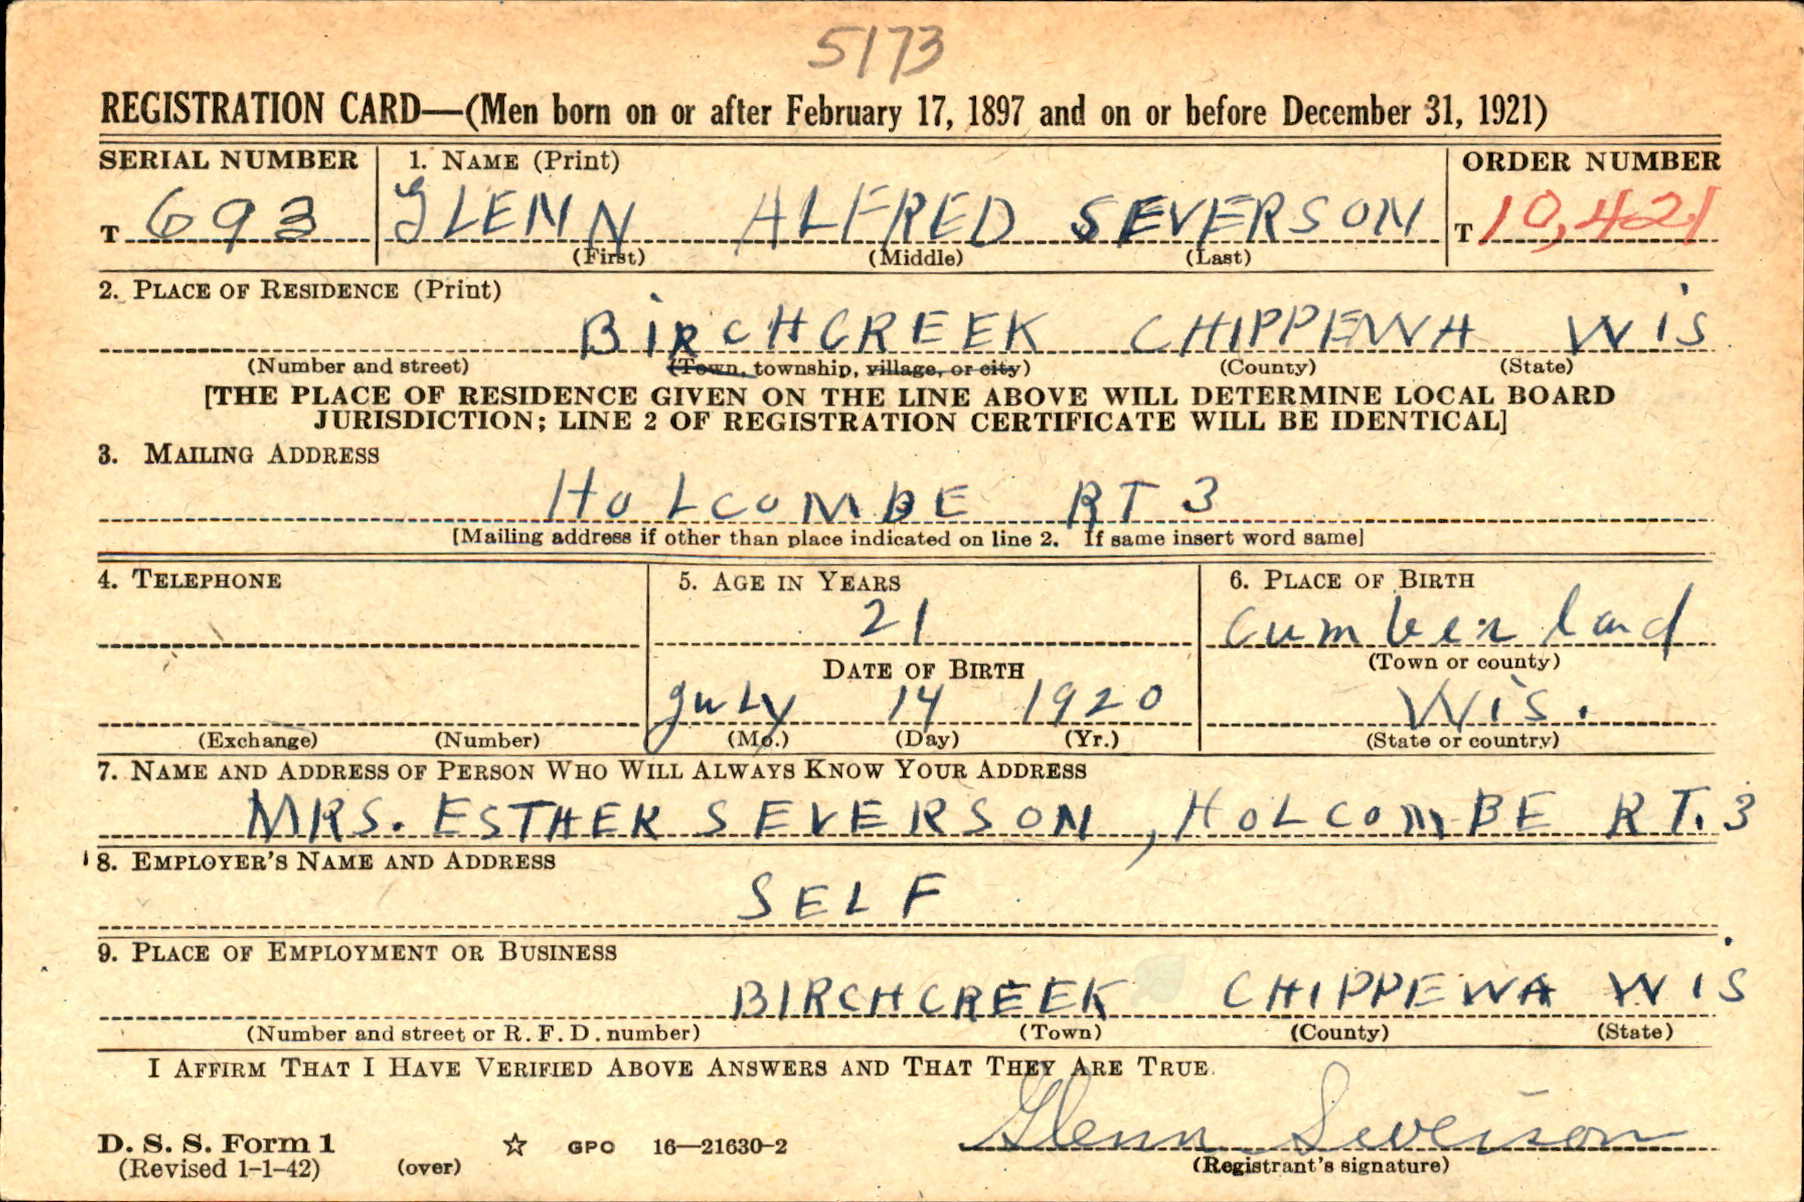 5173
REGISTRATION CARD—(Men born on or after February 17, 1897 and on or before December 31, 1921)
SERIAL NUMBER 1. NAME (Print) ORDER NUMBER
T 693 GLENN ALFRED SEVERSON T 10,421
(First) (Middle) (Last)
2. PLACE OF RESIDENCE (Print)
BIRCHCREEK CHIPPEWA WIS
(Number and street) (Town, township, village, or city) (County) (State)
[THE PLACE OF RESIDENCE GIVEN ON THE LINE ABOVE WILL DETERMINE LOCAL BOARD
JURISDICTION; LINE 2 OF REGISTRATION CERTIFICATE WILL BE IDENTICAL]
3. MAILING ADDRESS
HOLCOMBE RT 3
[Mailing address if other than place indicated on line 2. If same insert word same]
4. TELEPHONE 5. AGE IN YEARS 6. PLACE OF BIRTH
21 Cumberland
DATE OF BIRTH (Town or county)
July 14 1920 Wis.
(Exchange) (Number) (Mo.) (Day) (Yr.) (State or country)
7. NAME AND ADDRESS OF PERSON WHO WILL ALWAYS KNOW YOUR ADDRESS
MRS. ESTHER SEVERSON, HOLCOMBE RT. 3
8. EMPLOYER'S NAME AND ADDRESS
SELF
9. PLACE OF EMPLOYMENT OR BUSINESS
BIRCHCREEK CHIPPEWA WIS
(Number and street or R. F. D. number) (Town) (County) (State)
I AFFIRM THAT I HAVE VERIFIED ABOVE ANSWERS AND THAT THEY ARE TRUE.
Glenn Severson
D. S. S. Form 1 ☆ GPO 16—21630-2
(Revised 1-1-42) (over) (Registrant's signature)